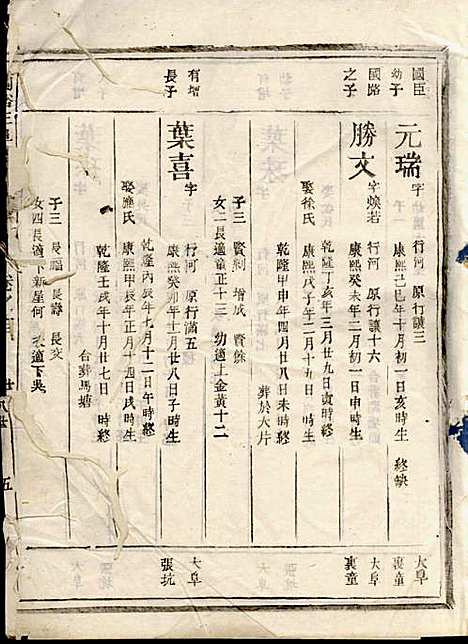 國臣
幼子
元瑞
字 行河 原行讓三
康熙己巳年十月初一日亥時生 終缺
大阜
裏童
國路
之子
勝文
字煥若 行河 原行讓十六
康熙癸未年二月初一日申時生
乾隆丁亥年三月廿九日寅時終
娶徐氏 康熙戊子年二月十九日 時生
乾隆甲申年四月廿八日未時終
葬於大片
子三 賢剩 增成 賢餘
女二 長適童正十三 幼適上金黃十二
大阜
裏童
有增
長子
葉喜
字 行河 原行滿五
康熙癸卯年十一月廿八日子時生
乾隆丙辰年七月十二日午時終
娶應氏 康熙甲辰年正月十四日戌時生
乾隆壬戌年十月廿七日 時終
合葬馬塘
子三 長福 長壽 長交
女四 長適下新屋何 適下吳
大阜
張坑
五